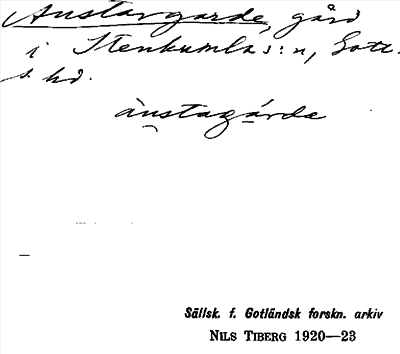 Anstargarde, gård
i Stenkumla s:n, Gotl.
s. hd.
ànstagárda
Sällsk. f. Gotländsk forskn. arkiv
NILS TIBERG 1920—23